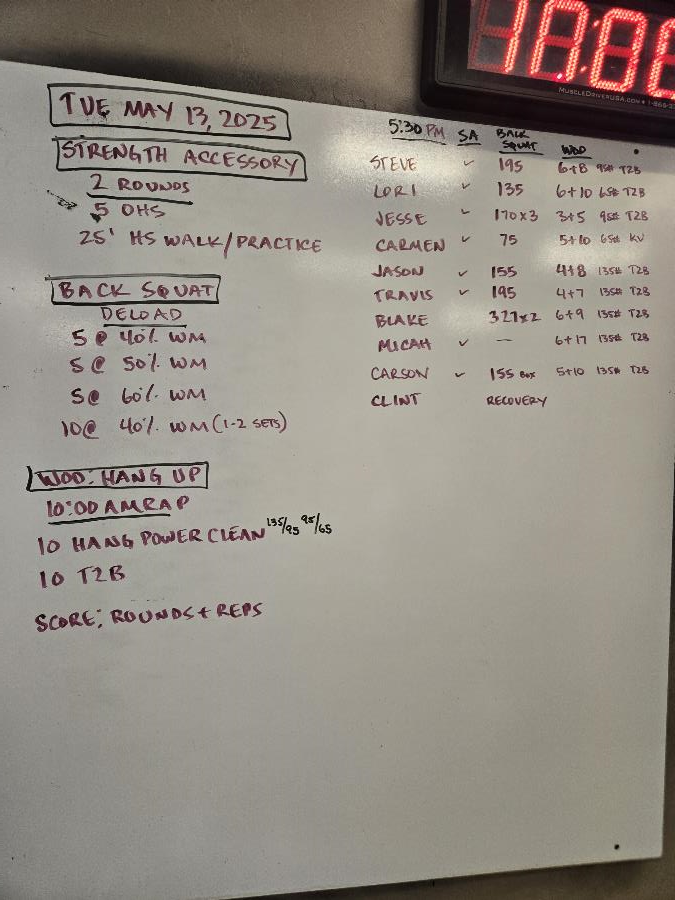 10:00
MUSCLEDRIVERUSA.COM • 1-866-
TUE MAY 13, 2025
STRENGTH ACCESSORY
2 ROUNDS
5 OHS
25' HS WALK/PRACTICE
BACK SQUAT
DELOAD
5 @ 40% WM
5 @ 50% WM
5 @ 60% WM
10 @ 40% WM (1-2 SETS)
WOD: HANG UP
10:00 AMRAP
10 HANG POWER CLEAN 135/95 95/65
10 T2B
SCORE: ROUNDS + REPS
5:30 PM SA BACK SQUAT WOD
STEVE ✓ 195 6+8 95# T2B
LORI ✓ 135 6+10 65# T2B
JESSE ✓ 170x3 3+5 95# T2B
CARMEN ✓ 75 5+10 65# KV
JASON ✓ 155 4+8 135# T2B
TRAVIS ✓ 195 4+7 135# T2B
BLAKE 327x2 6+9 135# T2B
MICAH ✓ — 6+17 135# T2B
CARSON ✓ 155 BOX 5+10 135# T2B
CLINT RECOVERY